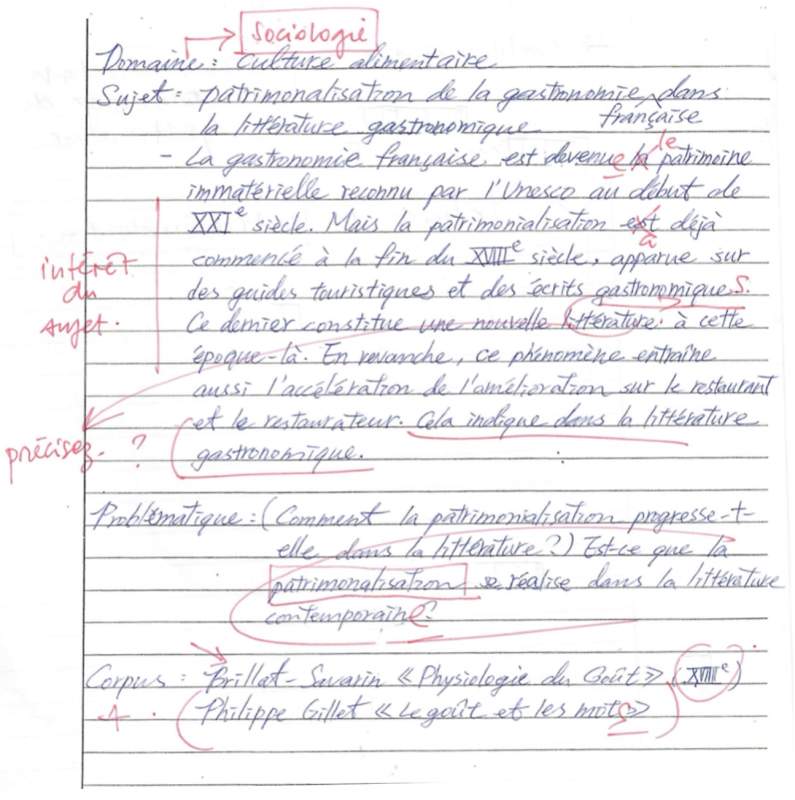 Sociologie
Domaine : Culture alimentaire
Sujet : patrimonalisation de la gastronomie dans
française
la littérature gastronomique
le
- La gastronomie française est devenue la patrimoine
immatérielle reconnu par l'Unesco au début de
XXIe siècle. Mais la patrimonialisation est déjà
a
commencé à la fin du XVIIIe siècle, apparue sur
intérêt
du
sujet.
des guides touristiques et des écrits gastronomiques.
Ce dernier constitue une nouvelle littérature à cette
époque-là. En revanche, ce phénomène entraîne
aussi l'accélération de l'amélioration sur le restaurant
et le restaurateur. Cela indique dans la littérature
précisez. ?
gastronomique.
Problématique : (Comment la patrimonialisation progresse-t-
elle dans la littérature?) Est-ce que la
patrimonalisation se réalise dans la littérature
contemporaine?
Corpus : Brillat-Savarin « Physiologie du Goût » (XVIIIe)
Philippe Gillet « Le goût et les mots »